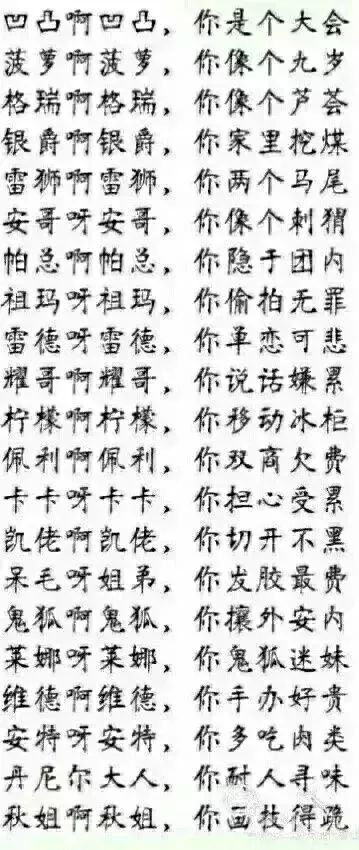 凹凸啊凹凸，你是个大会
菠萝啊菠萝，你像个九岁
格瑞啊格瑞，你像个芦荟
银爵啊银爵，你家里挖煤
雷狮啊雷狮，你两个马尾
安哥呀安哥，你像个刺猬
帕总啊帕总，你隐于团内
祖玛呀祖玛，你偷拍无罪
雷德呀雷德，你单恋可悲
耀哥啊耀哥，你说话嫌累
柠檬啊柠檬，你移动冰柜
佩利啊佩利，你双商欠费
卡卡呀卡卡，你担心受累
凯佬啊凯佬，你切开不黑
呆毛呀姐弟，你发胶最费
鬼狐啊鬼狐，你攘外安内
莱娜呀莱娜，你鬼狐迷妹
维德啊维德，你手办好贵
安特呀安特，你多吃肉类
丹尼尔大人，你耐人寻味
秋姐啊秋姐，你画技得跪